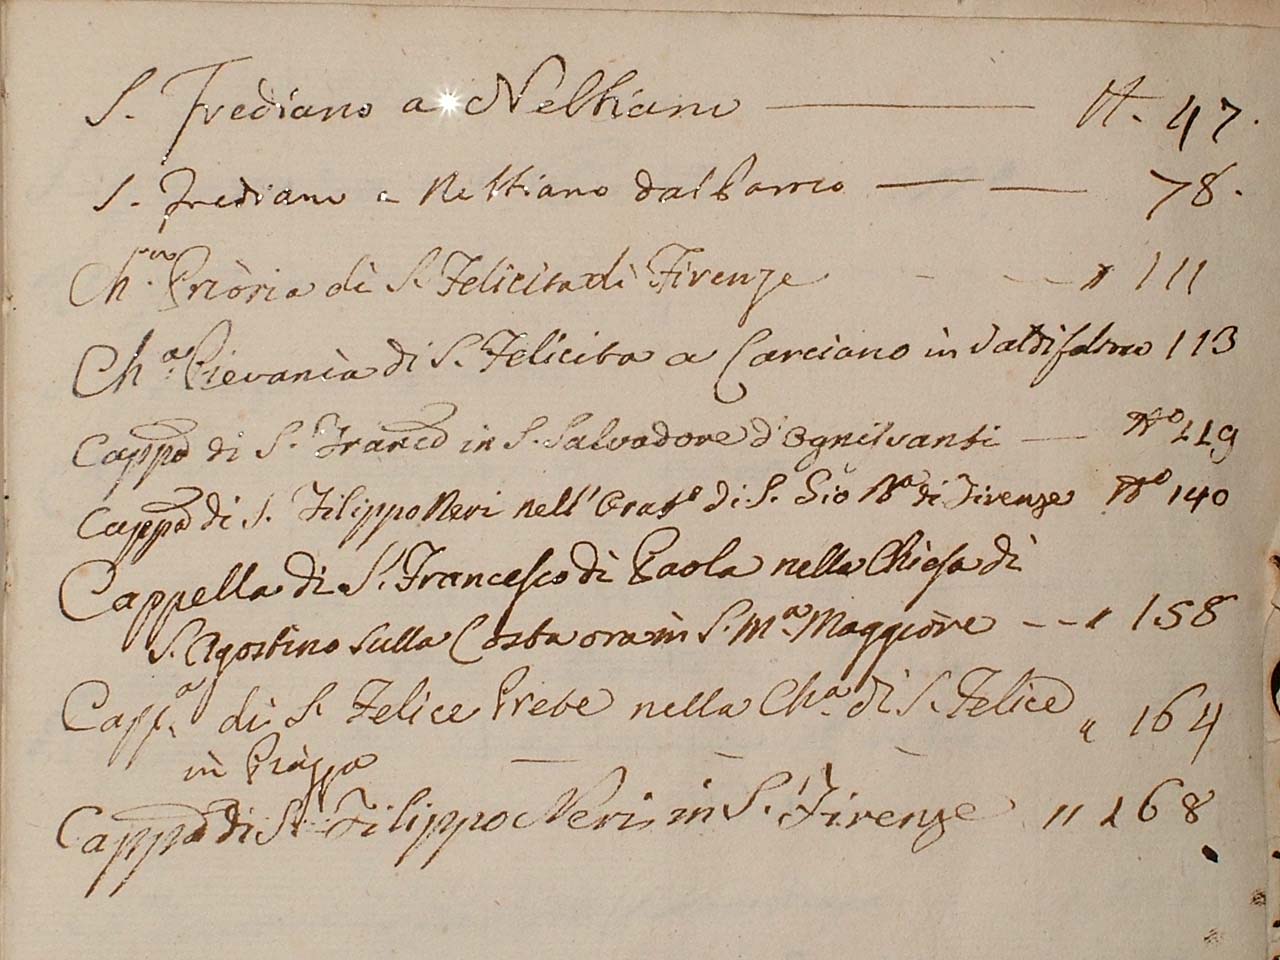 S. Frediano a Nebbiano — N. 47.
S. Frediano a Nebbiano dal Borro — 78.
Ch.ᵃ Prioria di S. Felicita di Firenze — 111
Ch.ᵃ Pievania di S. Felicita a Larciano in Valdi 113
Capp.ᵃ di S. Franc.ᵒ in S. Salvadore d'Ognissanti — Nº 119
Capp.ᵃ di S. Filippo Neri nell' Orat.º di S. Gio B.ᵃ di Firenze Nº 140
Cappella di S. Francesco di Paola nella Chiesa di
S. Agostino sulla Costa ora in S. M.ᵃ Maggiore -- " 158
Capp.ᵃ di S. Felice Prete nella Ch.ᵃ di S. Felice " 164
in Piazza — — —
Capp.ᵃ di S. Filippo Neri in S. Firenze " 168